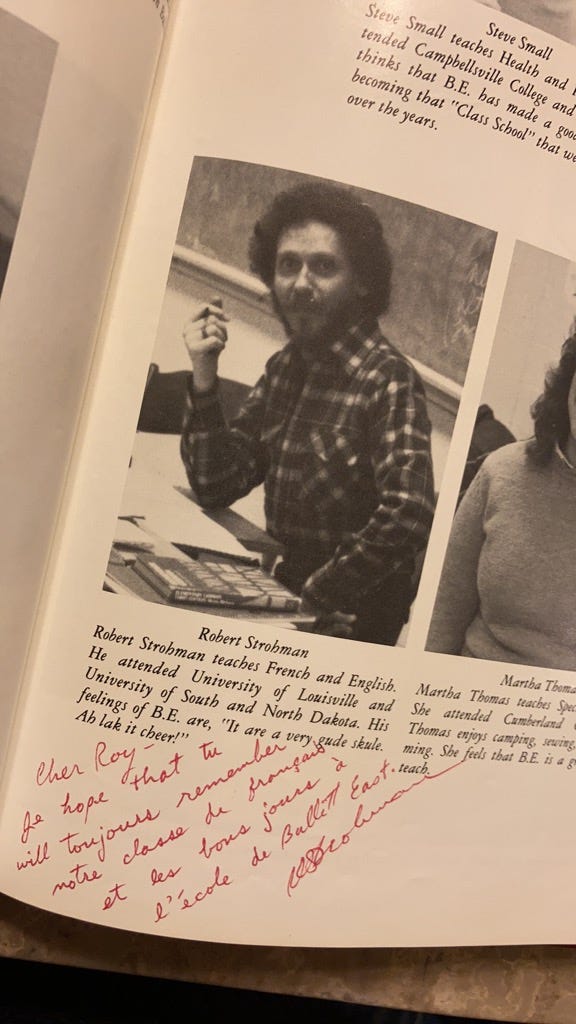 Steve Small
Steve Small teaches Health and
tended Campbellsville College and
thinks that B.E. has made a good
becoming that "Class School" that we
over the years.
Robert Strohman
Robert Strohman teaches French and English.
He attended University of Louisville and
University of South and North Dakota. His
feelings of B.E. are, "It are a very gude skule.
Ah lak it cheer!"
Martha Thoma
Martha Thomas teaches Spec
She attended Cumberland
Thomas enjoys camping, sewing,
ming. She feels that B.E. is a g
teach.
Cher Roy-
Je hope that tu
will toujours remember
notre classe de français
et les bons jours à
l'école de Bullitt East.
RStrohman